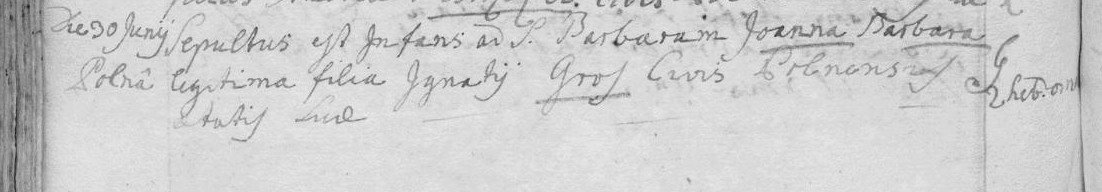 Die 30 Junij Sepultus est Infans ad S. Barbaram Joanna Barbara
Polna legitima filia Ignatij Groß Civis Polnensis
Ætatis suæ 2 hebdom